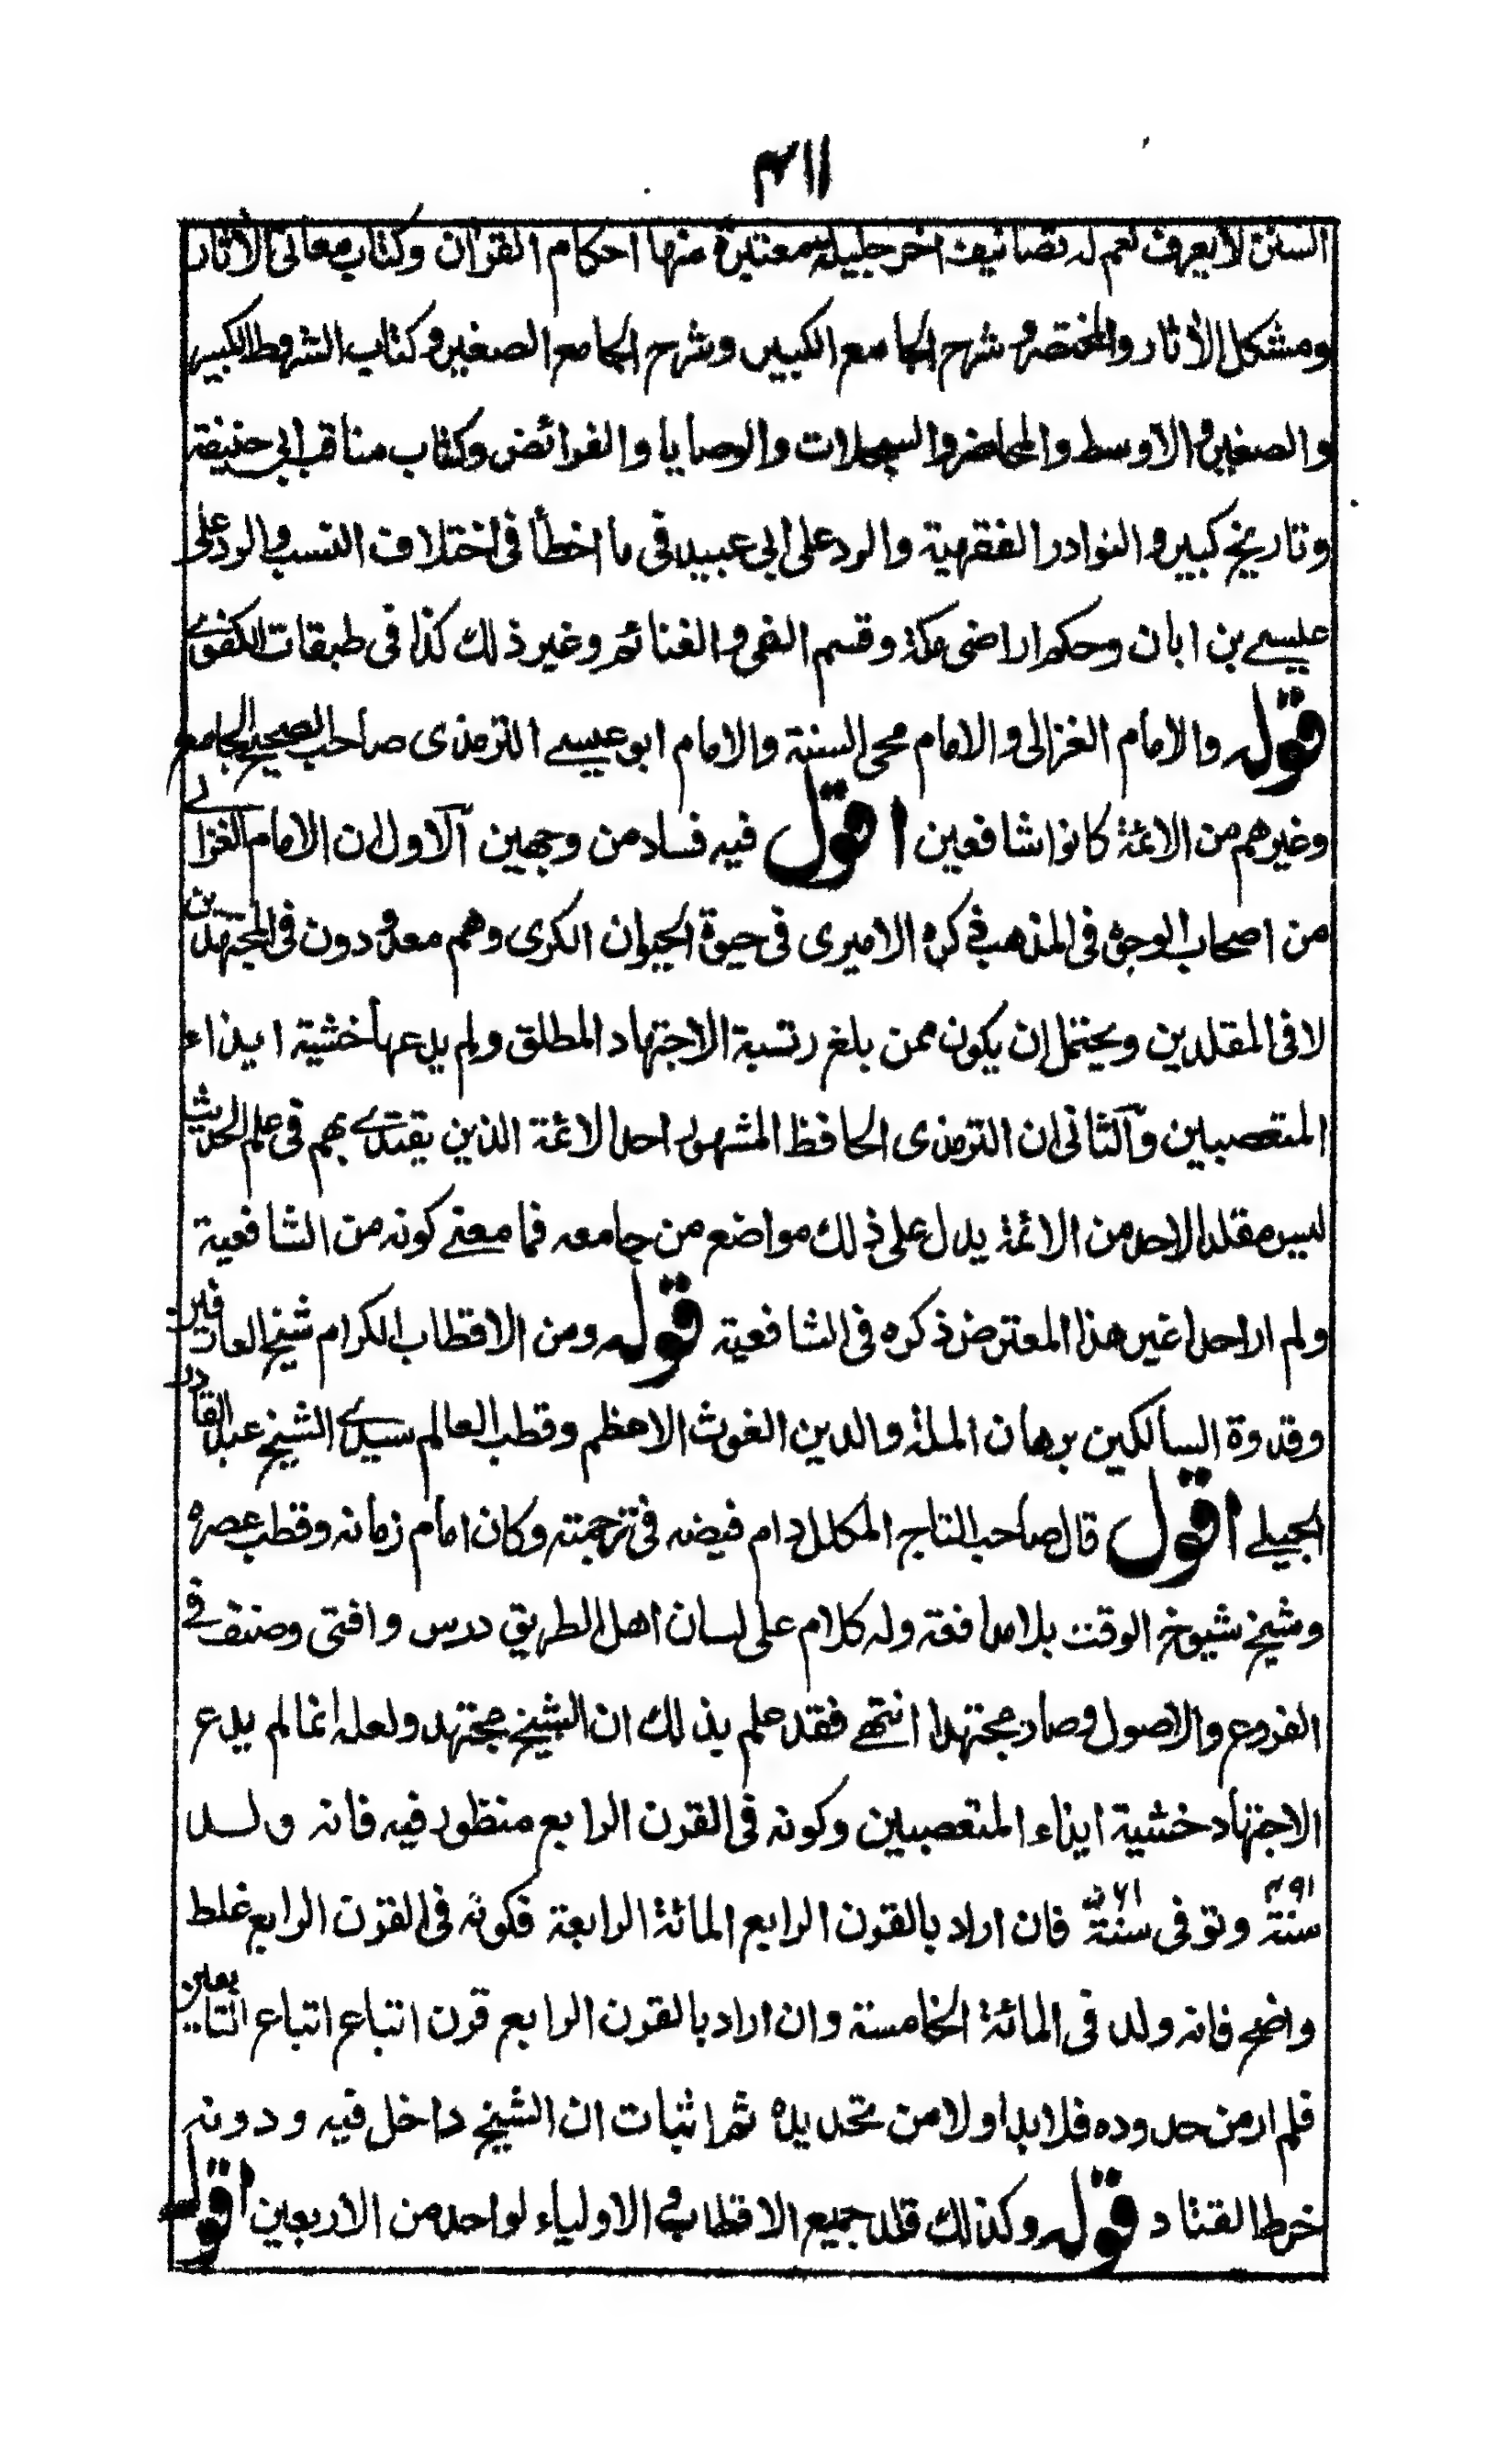 ٤١١
السنن لا يعرف نعم له تصانيف اخر جليلة معتبرة منها احكام القران وكتاب معانى الأثار
ومشكل الأثار والمختصر وشرح الجامع الكبير وشرح الجامع الصغير وكتاب الشروط الكبير
والصغير والاوسط والمحاضر والسجلات والوصايا والفرائض وكتاب مناقب ابى حنيفة
وتاريخ كبير والنوادر الفقهية والرد على ابى عبيد فى ما اخطأ فى اختلاف النسب والرد على
عيسے بن ابان وحكم اراضى مكة وقسم الفئ والغنائم وغير ذلك كذا فى طبقات الكفوے
قوله والامام الغزالى والامام محى السنة والامام ابو عيسے الترمذى صاحب الصحيح الجامع
وغيرهم من الائمة كانوا شافعين اقول فيه فساد من وجهين آلاول ان الامام الغزالے
من اصحاب الوجوه فى المذهب ذكره الاميرى فى حيوة الحيوان الكرى وهم معدودون فى المجتهدين
لا فى المقلدين ويحتمل ان يكون ممن بلغ رتسبة الاجتهاد المطلق ولم يدعها خشية ايذاء
المتعصبين وآلثانى ان الترمذى الحافظ المشهور احد الائمة الذين يقتدے بهم فى علم الحديث
ليس مقلدا لاحد من الائمة يدل على ذلك مواضع من جامعه فما معنے كونه من الشافعية
ولم ار احدا غير هذا المعترض ذكره فى الشافعية قوله ومن الاقطاب الكرام شيخ العارفين
وقدوة السالكين برهان الملة والدين الغوث الاعظم وقطب العالم سيدے الشيخ عبد القادر
الجيلے اقول قال صاحب التاج المكلل دام فيضه فى ترجمته وكان امام زمانه وقطب عصره
وشيخ شيوخ الوقت بلا مدافعة وله كلام على لسان اهل الطريق درس وافتى وصنف فے
الفروع والاصول وصار مجتهدا انتهے فقد علم بذلك ان الشيخ مجتهد ولعله انما لم يدع
الاجتهاد خشية ايذاء المتعصبين وكونه فى القرن الرابع منظور فيه فانه ولد
سنة ٤٩١ وتوفى سنة ٥٦١ فان اراد بالقرن الرابع المائة الرابعة فكونه فى القرن الرابع غلط
واضح فانه ولد فى المائة الخامسة وان اراد بالقرن الرابع قرن اتباع اتباع التابعين
فلم ار من حدوده فلا بد اولا من تحديده ثم اثبات ان الشيخ داخل فيه ودونه
خرط القتاد قوله وكذلك قلد جميع الاقطاب والاولياء لواحد من الاربعين اقول